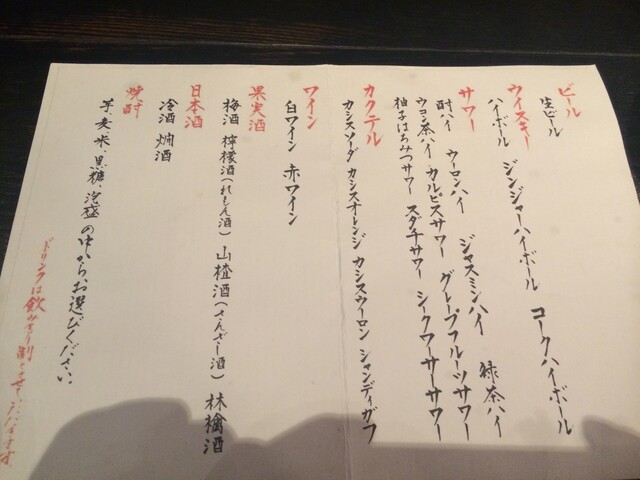 ビール
生ビール
ウイスキー
ハイボール ジンジャーハイボール コークハイボール
サワー
酎ハイ ウーロンハイ ジャスミンハイ 緑茶ハイ
ウコン茶ハイ カルピスサワー グレープフルーツサワー
柚子はちみつサワー スダチサワー シークワーサーサワー
カクテル
カシスソーダ カシスオレンジ カシスウーロン シャンディガフ
ワイン
白ワイン 赤ワイン
果実酒
梅酒 檸檬酒(れもん酒) 山楂酒(さんざし酒) 林檎酒
日本酒
冷酒 燗酒
焼酎
芋・麦・米・黒糖・泡盛の中からお選びください
ドリンクは飲みきり制とさせていただきます